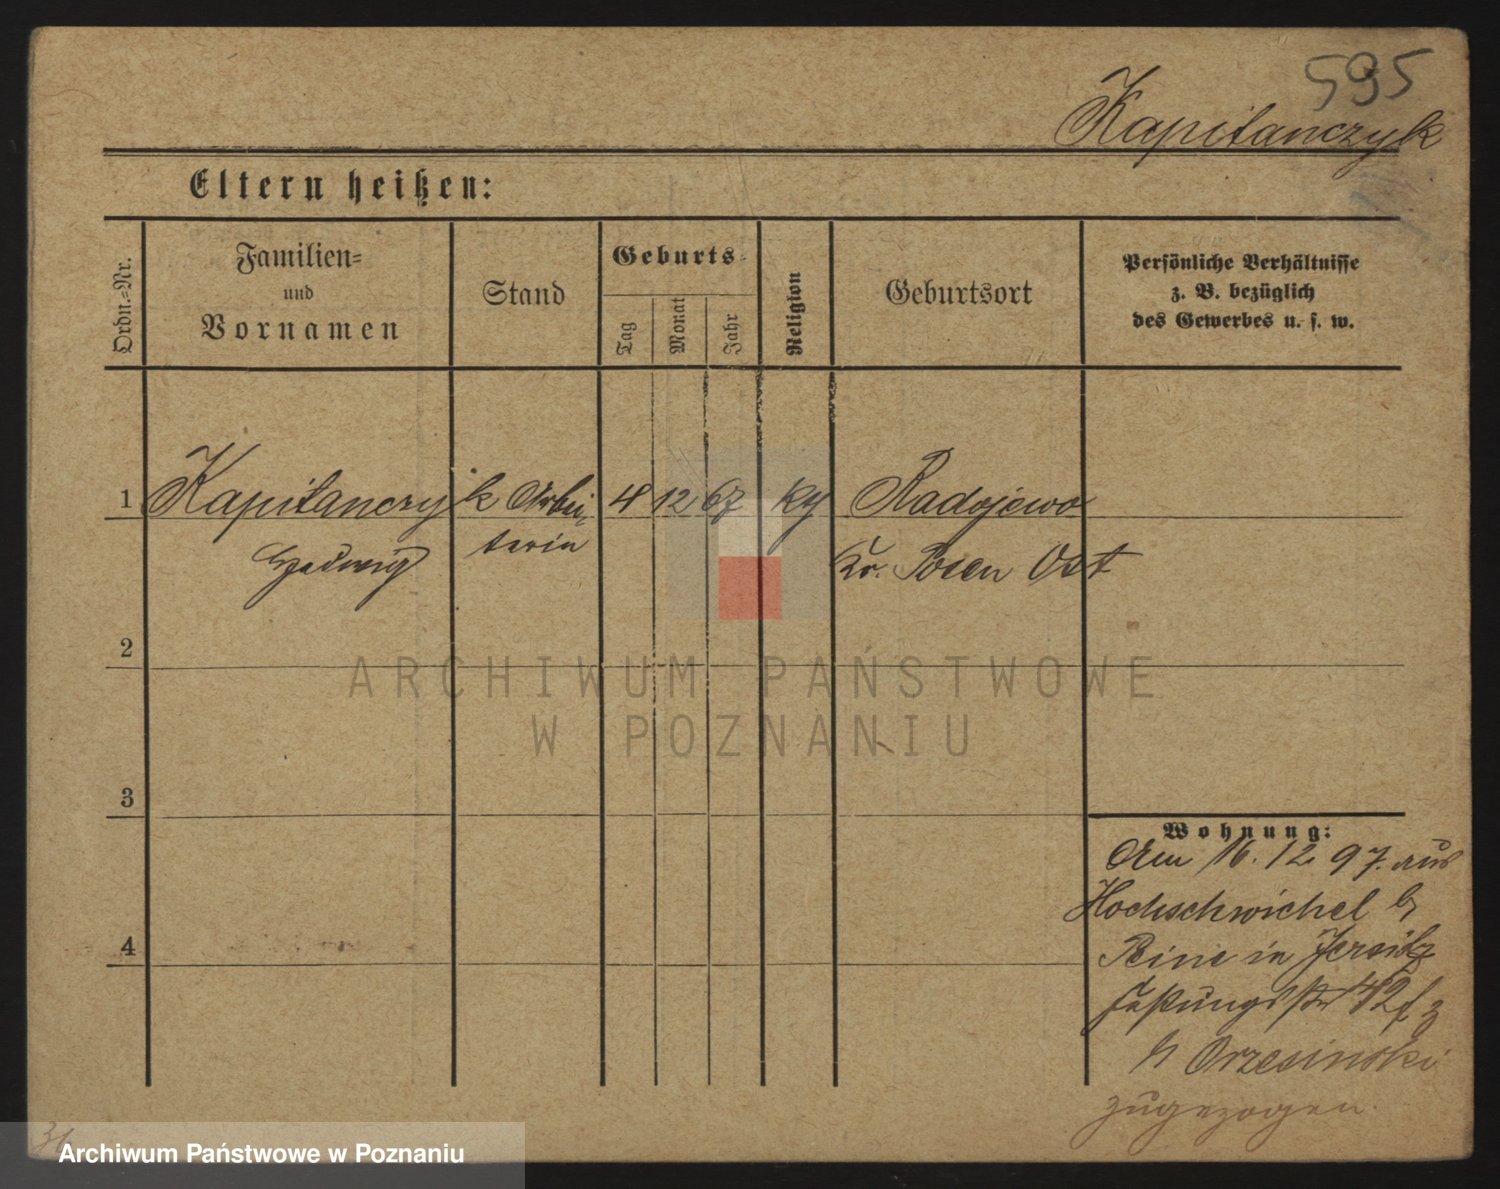 595
Kapitanczyk
Eltern heißen:
Ordn.-Nr.
Familien-
und
Vornamen
Stand
Geburts-
Tag
Monat
Jahr
Religion
Geburtsort
Persönliche Verhältnisse
z. B. bezüglich
des Gewerbes u. s. w.
1 Kapitanczyk Arbei- 4 12 67 Radojewo
Hedwig terin Kr. Posen Ost
2
ARCHIWUM PAŃSTWOWE
W POZNANIU
3
Wohnung:
Am 16.12.97. aus
Hochschwichel b
Peine in Jersitz
Festungsstr 42f z
Orzesinski
zugezogen.
4
Archiwum Państwowe w Poznaniu